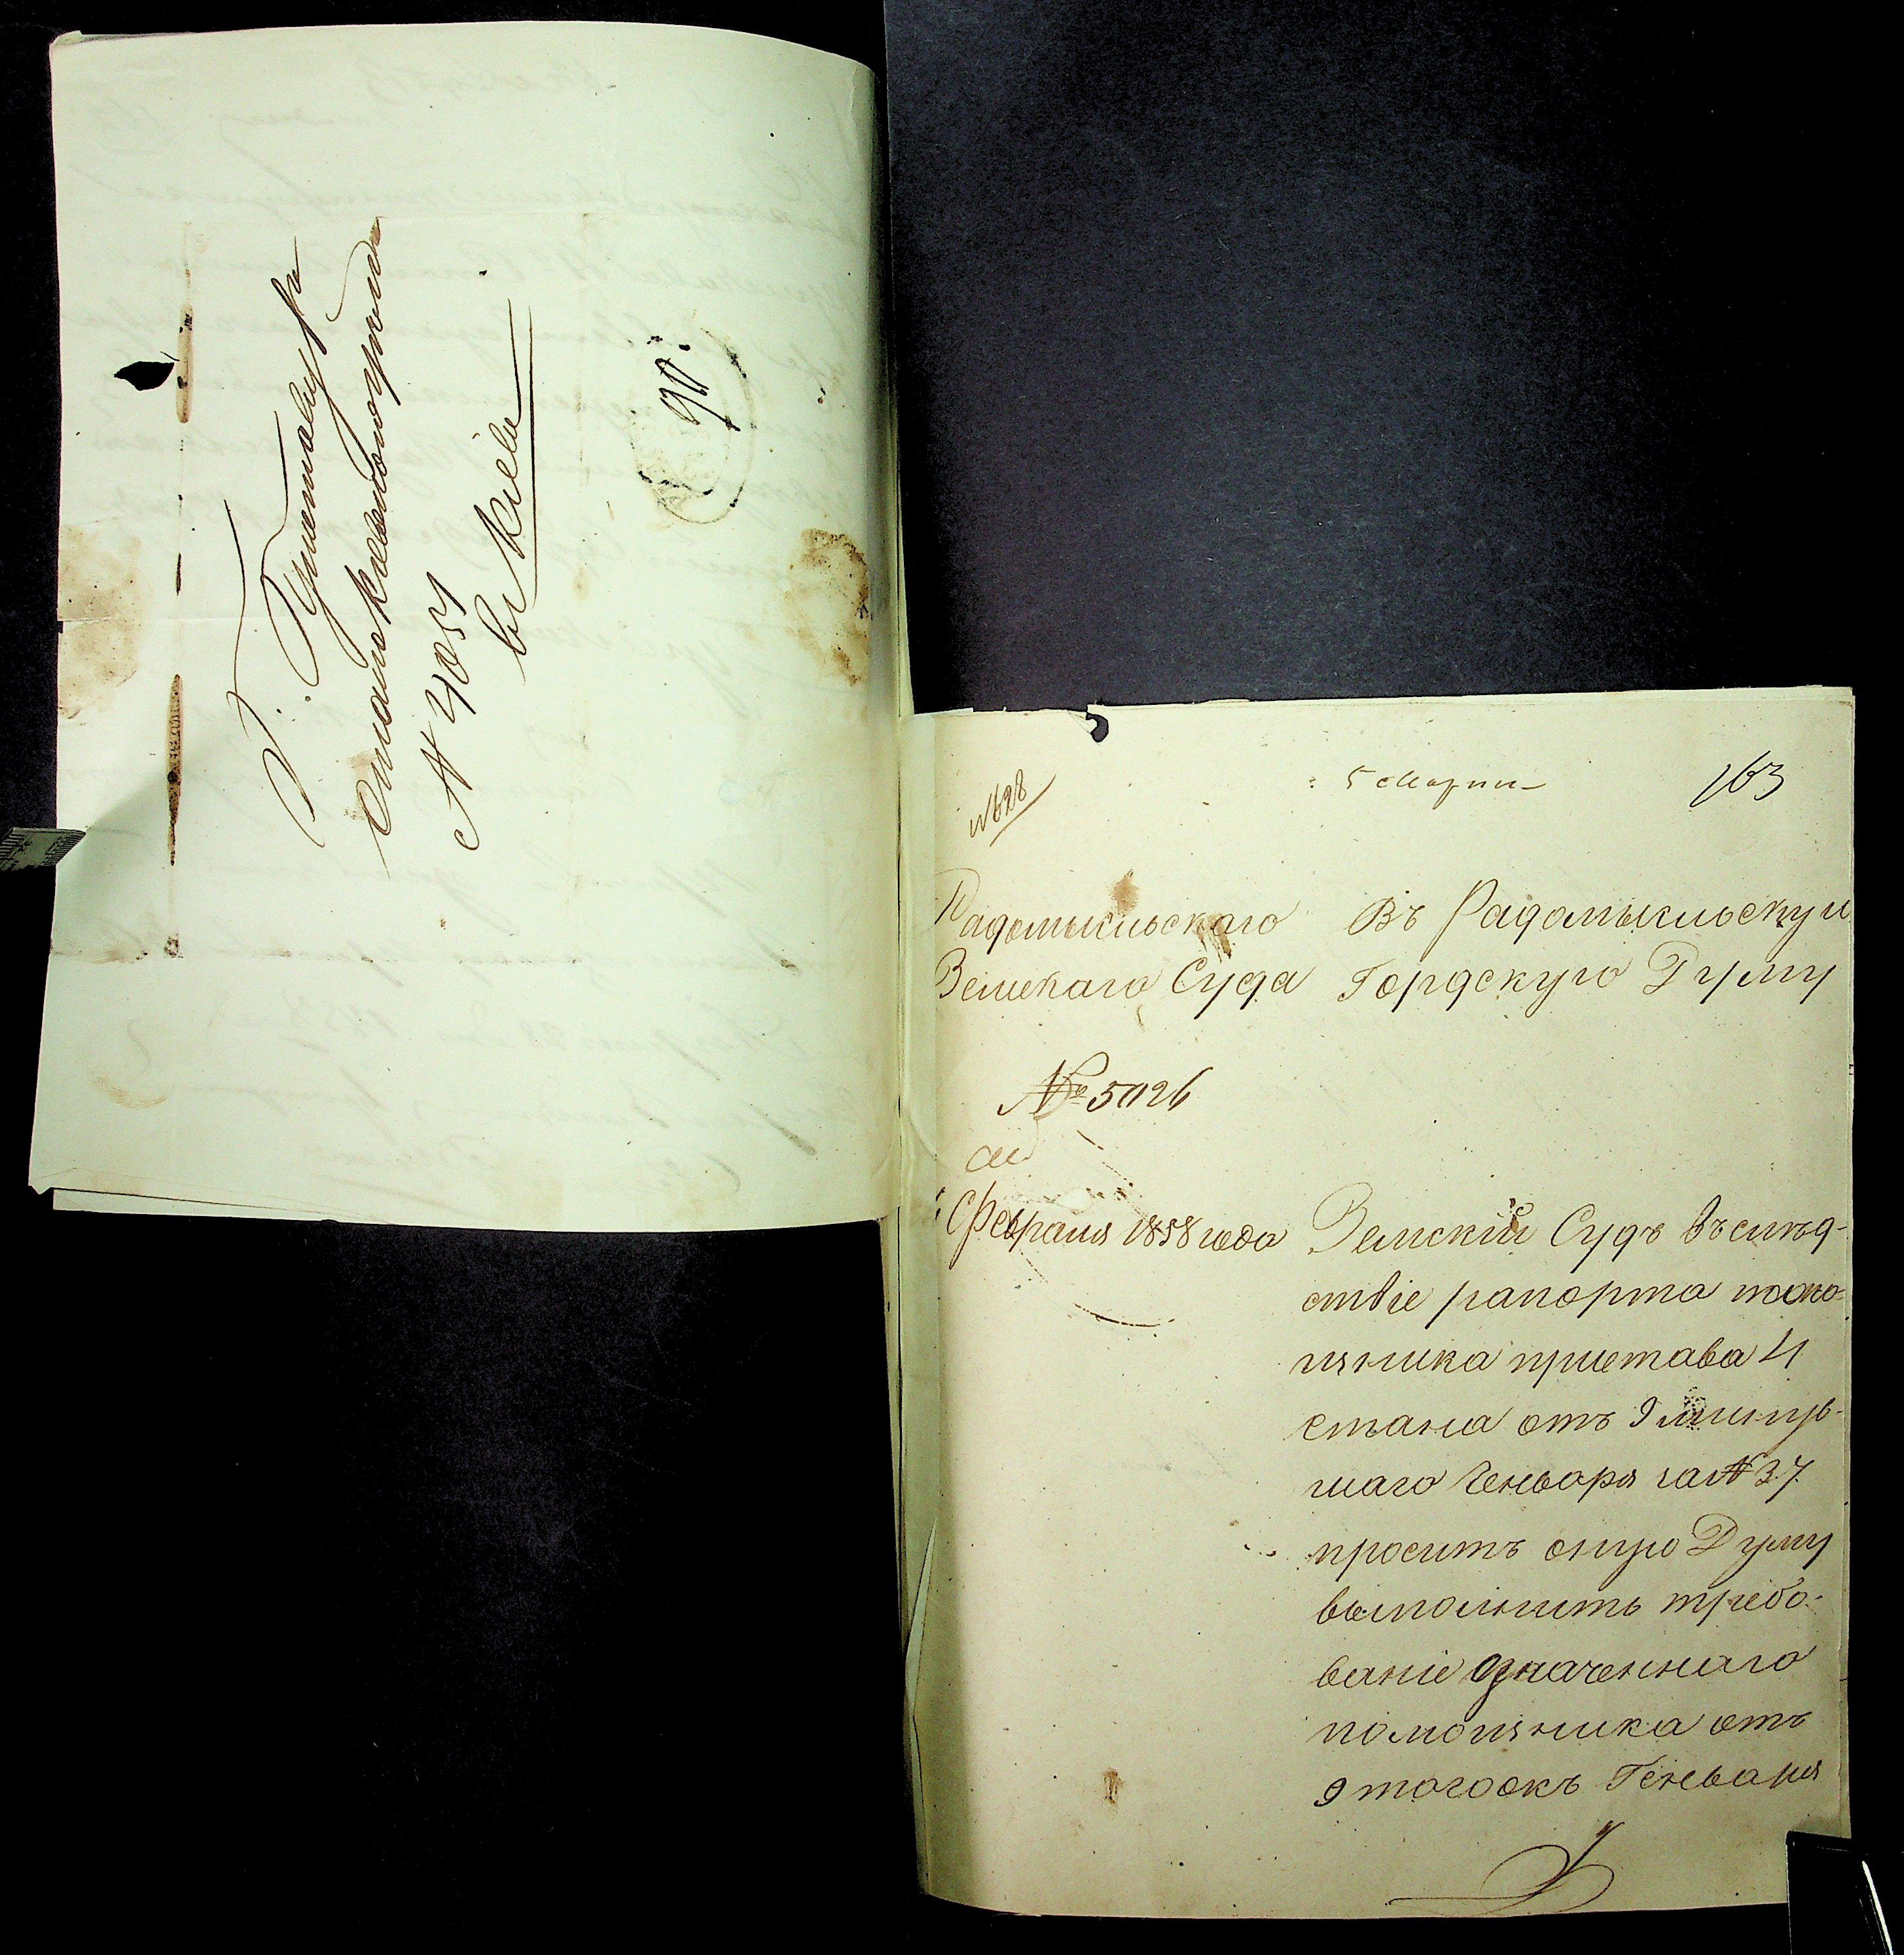 Г. Приставу 4
стана Киевского уезда
№ 4051
въ Кіевъ
90
№ 628
5 Марта
163
Радомысльскаго
Земскаго Суда
№ 5026
Февраля 1858 года
Въ Радомысльскую
Гордскую Думу
Земскій Судъ въ слѣд-
ствіе рапорта помо-
щника пристава 4
стана отъ 9 минув-
шаго Генваря за № 37
проситъ оную Думу
выполнить требо-
ваніе означеннаго
помощника отъ
9 того жъ Генваря